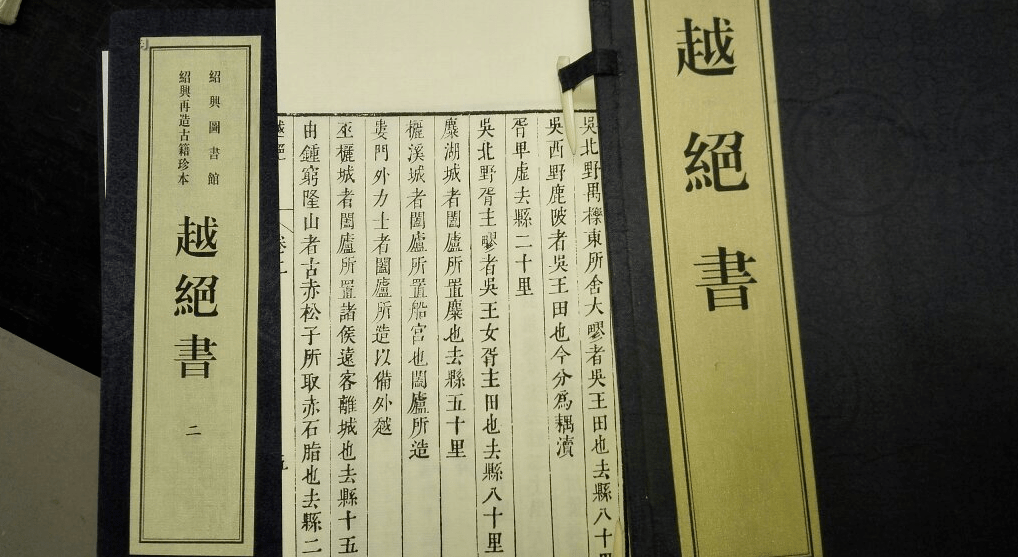 越絕書
吳北野禺櫟東所舍大疁者吳王田也去縣八十里
吳西野鹿陂者吳王田也今分爲耦瀆
胥卑虛去縣二十里
吳北野胥主疁者吳王女胥主田也去縣八十里
麋湖城者闔廬所置麋也去縣五十里
欐溪城者闔廬所置船宮也闔廬所造
婁門外力士者闔廬所造以備外越
巫欐城者闔廬所置諸侯遠客離城也去縣十五
由鍾窮隆山者古赤松子所取赤石脂也去縣二
紹興圖書館
紹興再造古籍珍本
越絕書 二